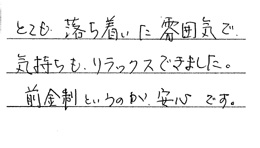 とても、落ち着いた雰囲気で、
気持ちも、リラックスできました。
前金制というのが、安心です。